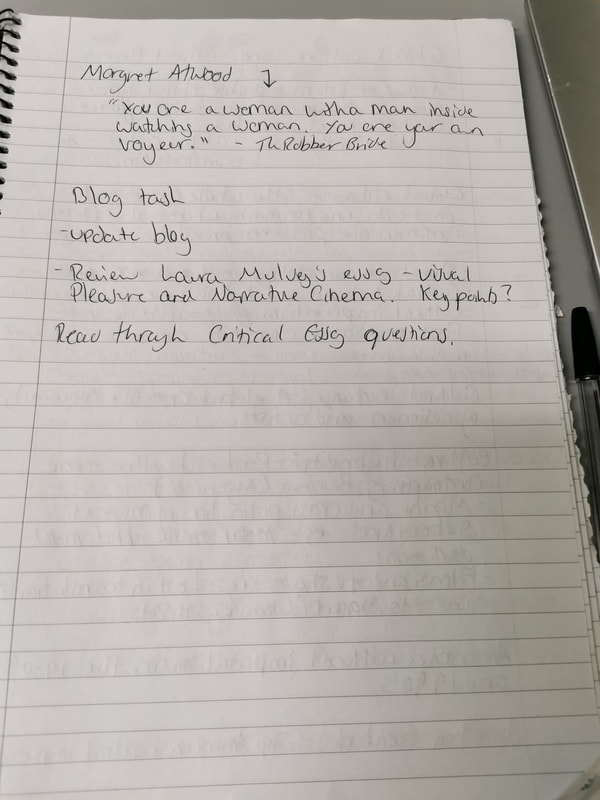 Margret Atwood ↓
"You are a woman with a man inside
watching a woman. You are your own
voyeur." - Th Robber Bride
Blog task
-update blog
- Review Laura Mulvey's essay - Visual
Pleasure and Narrative Cinema. Key points?
Read through Critical Essay questions.